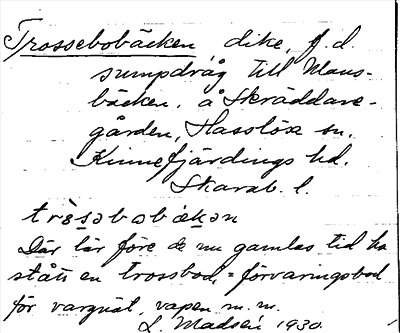 Trossebobäcken, dike, f. d.
sumpdråg till Mans-
bäcken, å Skräddare-
gården, Hasslösa sn.
Kinnefjärdings hd.
Skarab. l.
Där lär före de nu gamlas tid ha
stått en trossbod, = förvaringsbod
för vargnät, vapen m. m.
L. Madsén 1930.